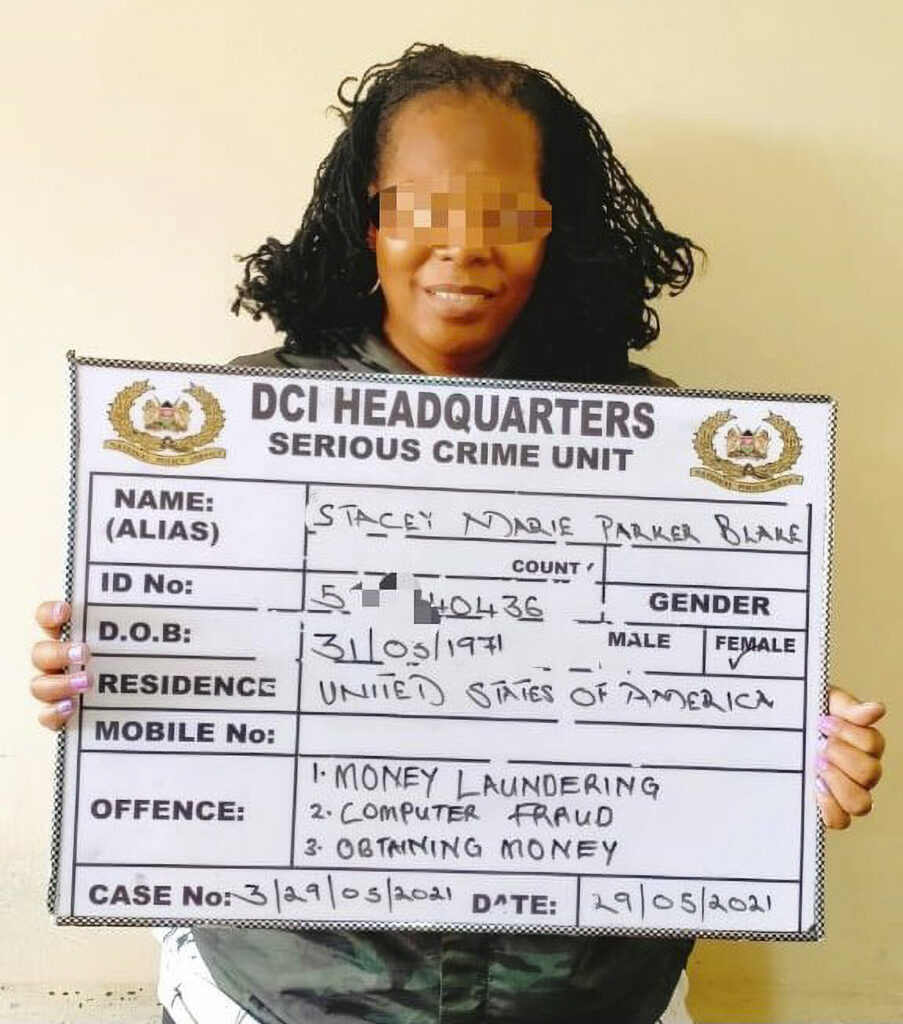 DCI HEADQUARTERS
SERIOUS CRIME UNIT
NAME: STACEY MARIE PARKER BLAKE
(ALIAS)
COUNT
ID No: 5 40436
GENDER
D.O.B: 31/05/1971
MALE FEMALE
RESIDENCE UNITED STATES OF AMERICA
MOBILE No:
OFFENCE:
1. MONEY LAUNDERING
2. COMPUTER FRAUD
3. OBTAINING MONEY
CASE No: 3/29/05/2021 DATE: 29/05/2021